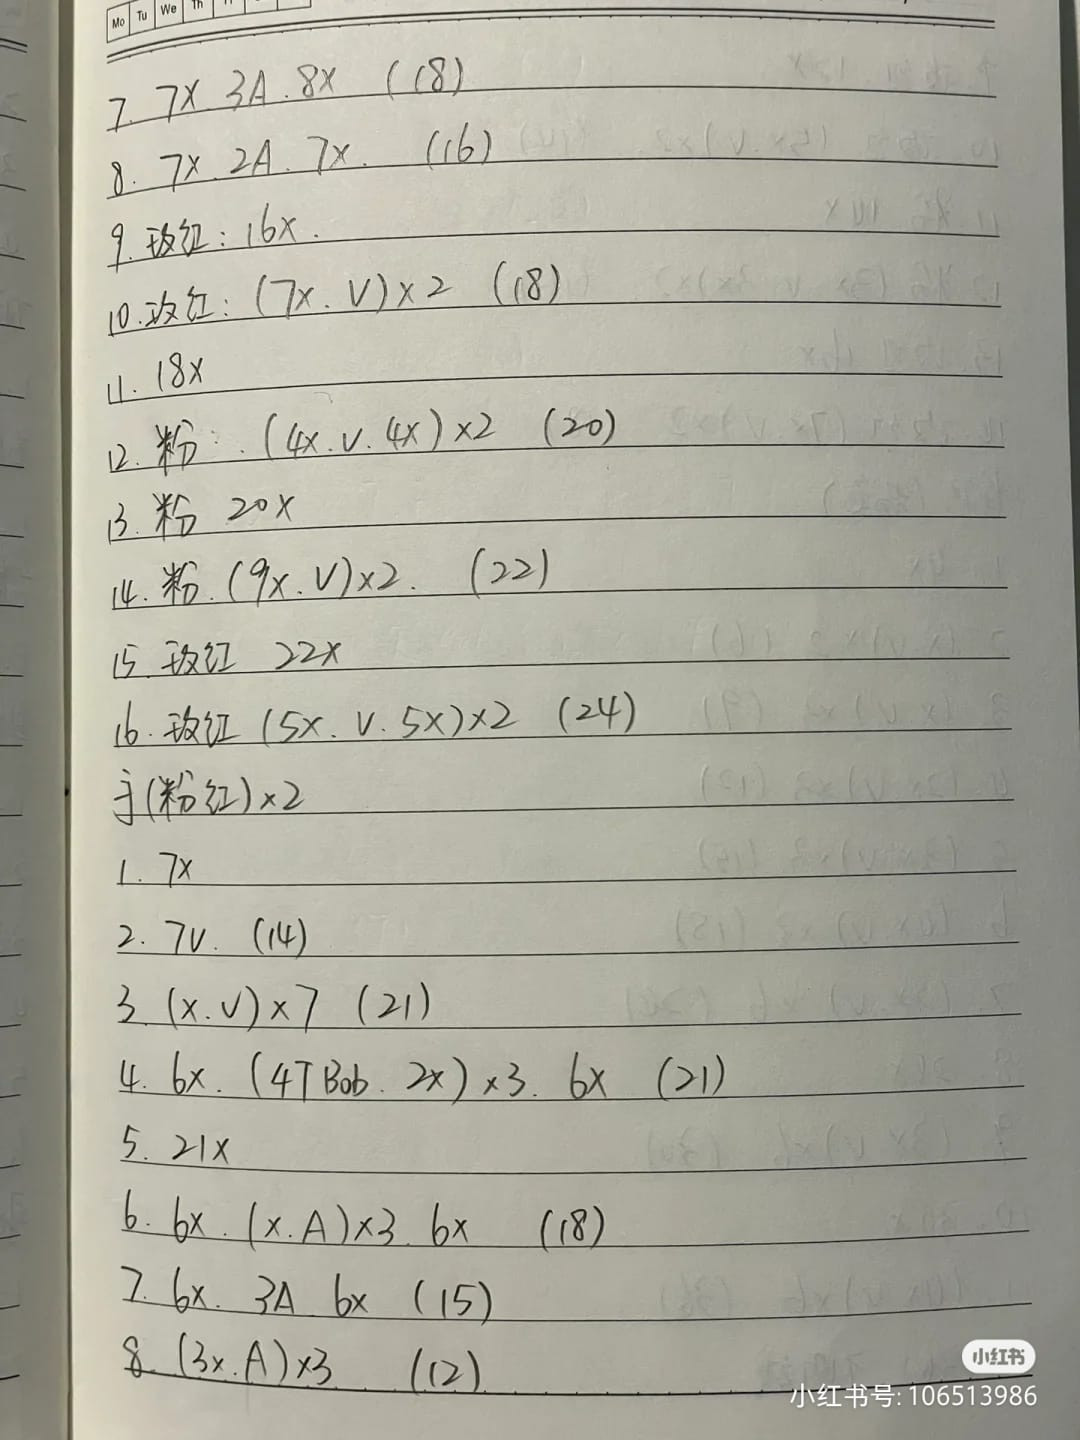 Mo Tu We Th
7. 7X 3A. 8X (18)
8. 7X. 2A. 7X. (16)
9. 玫红: 16X.
10. 玫红: (7X. V)×2 (18)
11. 18X
12. 粉: (4X. V. 4X)×2 (20)
13. 粉 20X
14. 粉. (9X. V)×2. (22)
15. 玫红 22X
16. 玫红 (5X. V. 5X)×2 (24)
(粉红)×2
1. 7X
2. 7V. (14)
3. (X. V)×7 (21)
4. 6X. (4TBob. 2X)×3. 6X (21)
5. 21X
6. 6X. (X. A)×3 6X (18)
7. 6X. 3A 6X (15)
8. (3X. A)×3 (12)
小红书
小红书号: 106513986